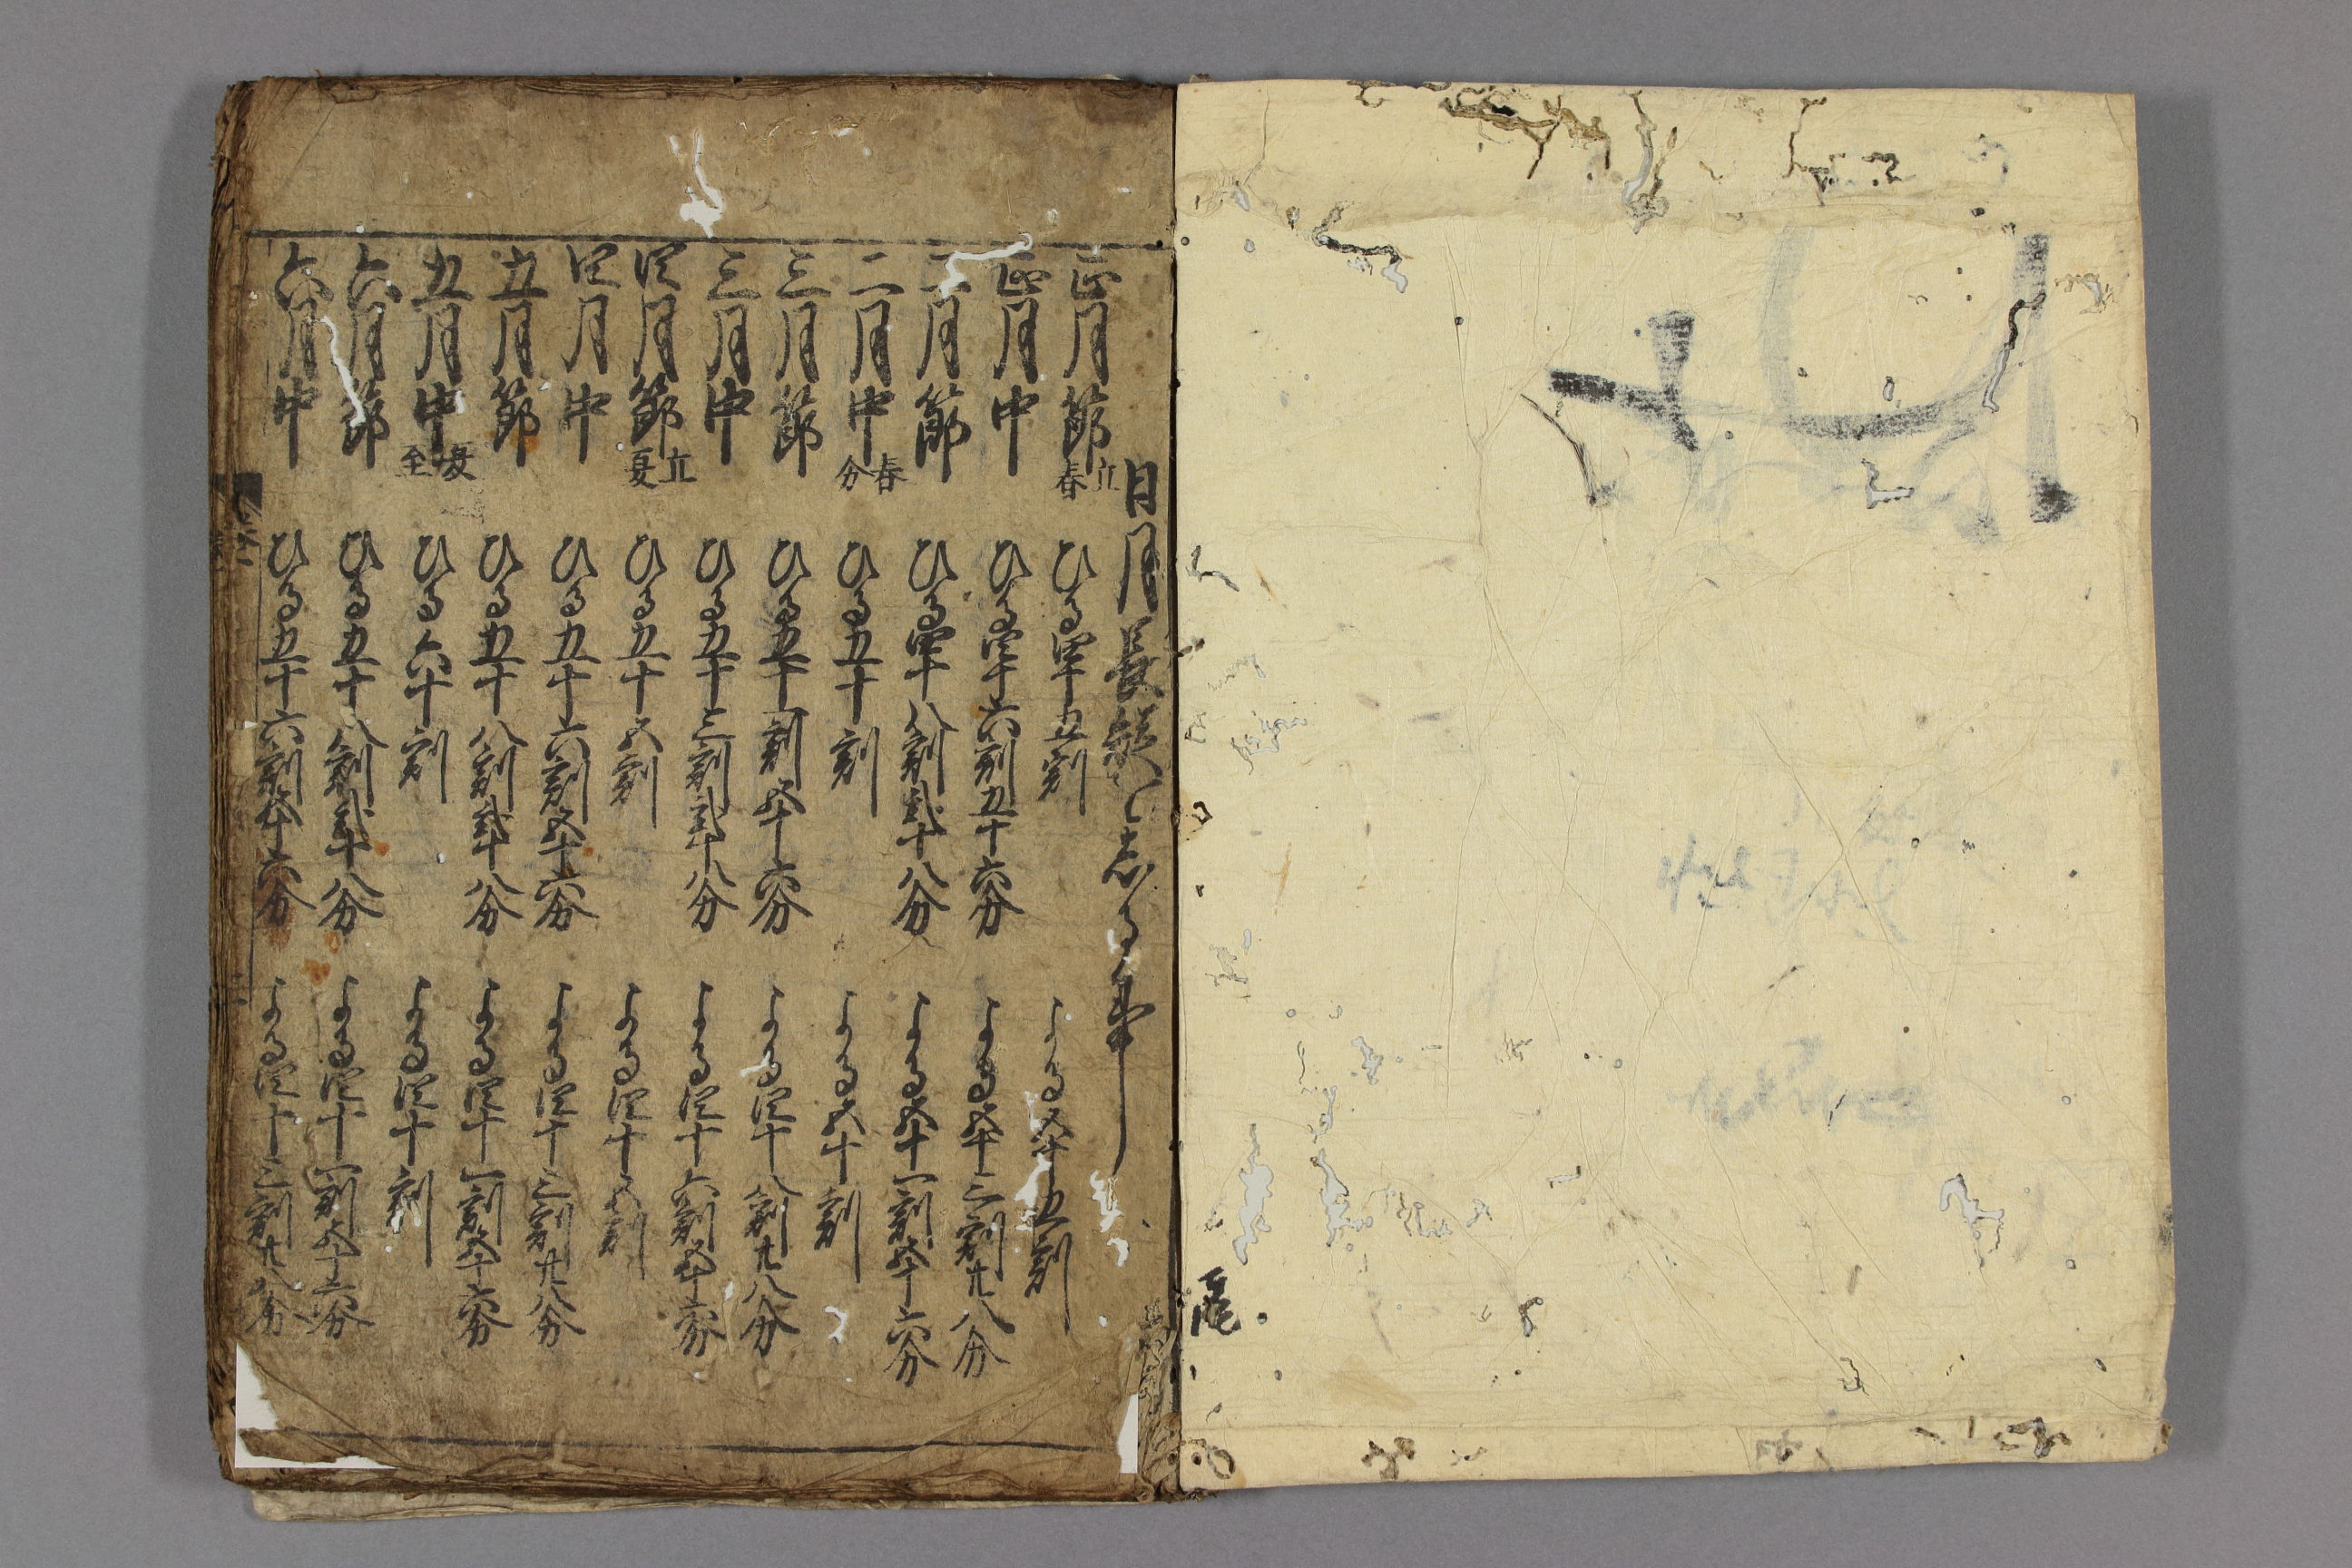 日月長短を志る事
正月節 立春 ひる四十五刻 よる五十五刻
正月中 ひる四十六刻五十六分 よる五十三刻廿八分
二月節 ひる四十八刻弐十八分 よる五十一刻五十六分
二月中 春分 ひる五十刻 よる五十刻
三月節 ひる五十一刻五十六分 よる四十八刻廿八分
三月中 ひる五十三刻弐十八分 よる四十六刻五十六分
四月節 立夏 ひる五十五刻 よる四十五刻
四月中 ひる五十六刻五十六分 よる四十三刻廿八分
五月節 ひる五十八刻弐十八分 よる四十一刻五十六分
五月中 夏至 ひる六十刻 よる四十刻
六月節 ひる五十八刻弐十八分 よる四十一刻五十六分
六月中 ひる五十六刻五十六分 よる四十三刻廿八分